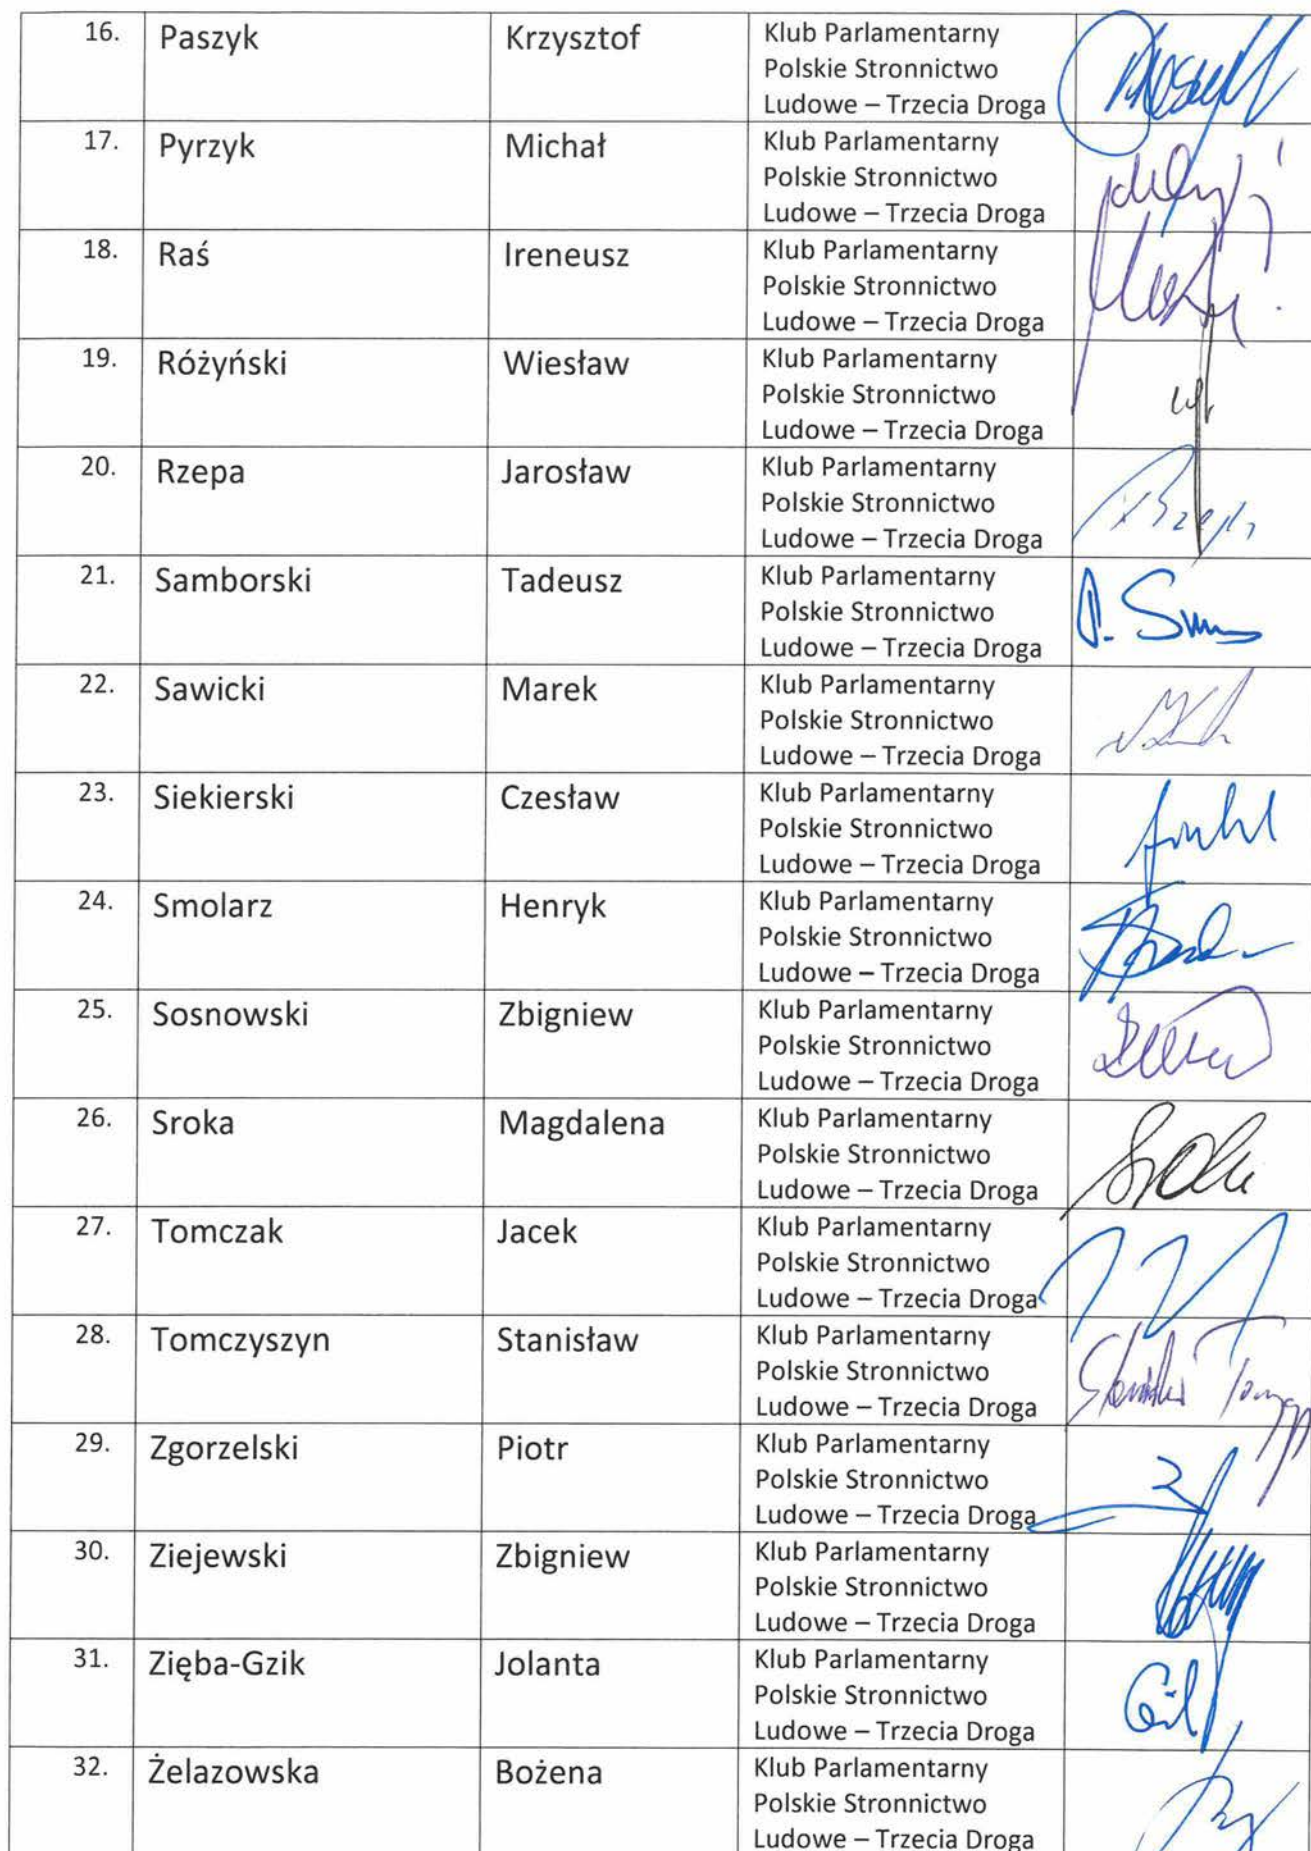 16. Paszyk Krzysztof Klub Parlamentarny
Polskie Stronnictwo
Ludowe – Trzecia Droga
17. Pyrzyk Michał Klub Parlamentarny
Polskie Stronnictwo
Ludowe – Trzecia Droga
18. Raś Ireneusz Klub Parlamentarny
Polskie Stronnictwo
Ludowe – Trzecia Droga
19. Różyński Wiesław Klub Parlamentarny
Polskie Stronnictwo
Ludowe – Trzecia Droga
20. Rzepa Jarosław Klub Parlamentarny
Polskie Stronnictwo
Ludowe – Trzecia Droga
21. Samborski Tadeusz Klub Parlamentarny
Polskie Stronnictwo
Ludowe – Trzecia Droga
22. Sawicki Marek Klub Parlamentarny
Polskie Stronnictwo
Ludowe – Trzecia Droga
23. Siekierski Czesław Klub Parlamentarny
Polskie Stronnictwo
Ludowe – Trzecia Droga
24. Smolarz Henryk Klub Parlamentarny
Polskie Stronnictwo
Ludowe – Trzecia Droga
25. Sosnowski Zbigniew Klub Parlamentarny
Polskie Stronnictwo
Ludowe – Trzecia Droga
26. Sroka Magdalena Klub Parlamentarny
Polskie Stronnictwo
Ludowe – Trzecia Droga
27. Tomczak Jacek Klub Parlamentarny
Polskie Stronnictwo
Ludowe – Trzecia Droga
28. Tomczyszyn Stanisław Klub Parlamentarny
Polskie Stronnictwo
Ludowe – Trzecia Droga
29. Zgorzelski Piotr Klub Parlamentarny
Polskie Stronnictwo
Ludowe – Trzecia Droga
30. Ziejewski Zbigniew Klub Parlamentarny
Polskie Stronnictwo
Ludowe – Trzecia Droga
31. Zięba-Gzik Jolanta Klub Parlamentarny
Polskie Stronnictwo
Ludowe – Trzecia Droga
32. Żelazowska Bożena Klub Parlamentarny
Polskie Stronnictwo
Ludowe – Trzecia Droga